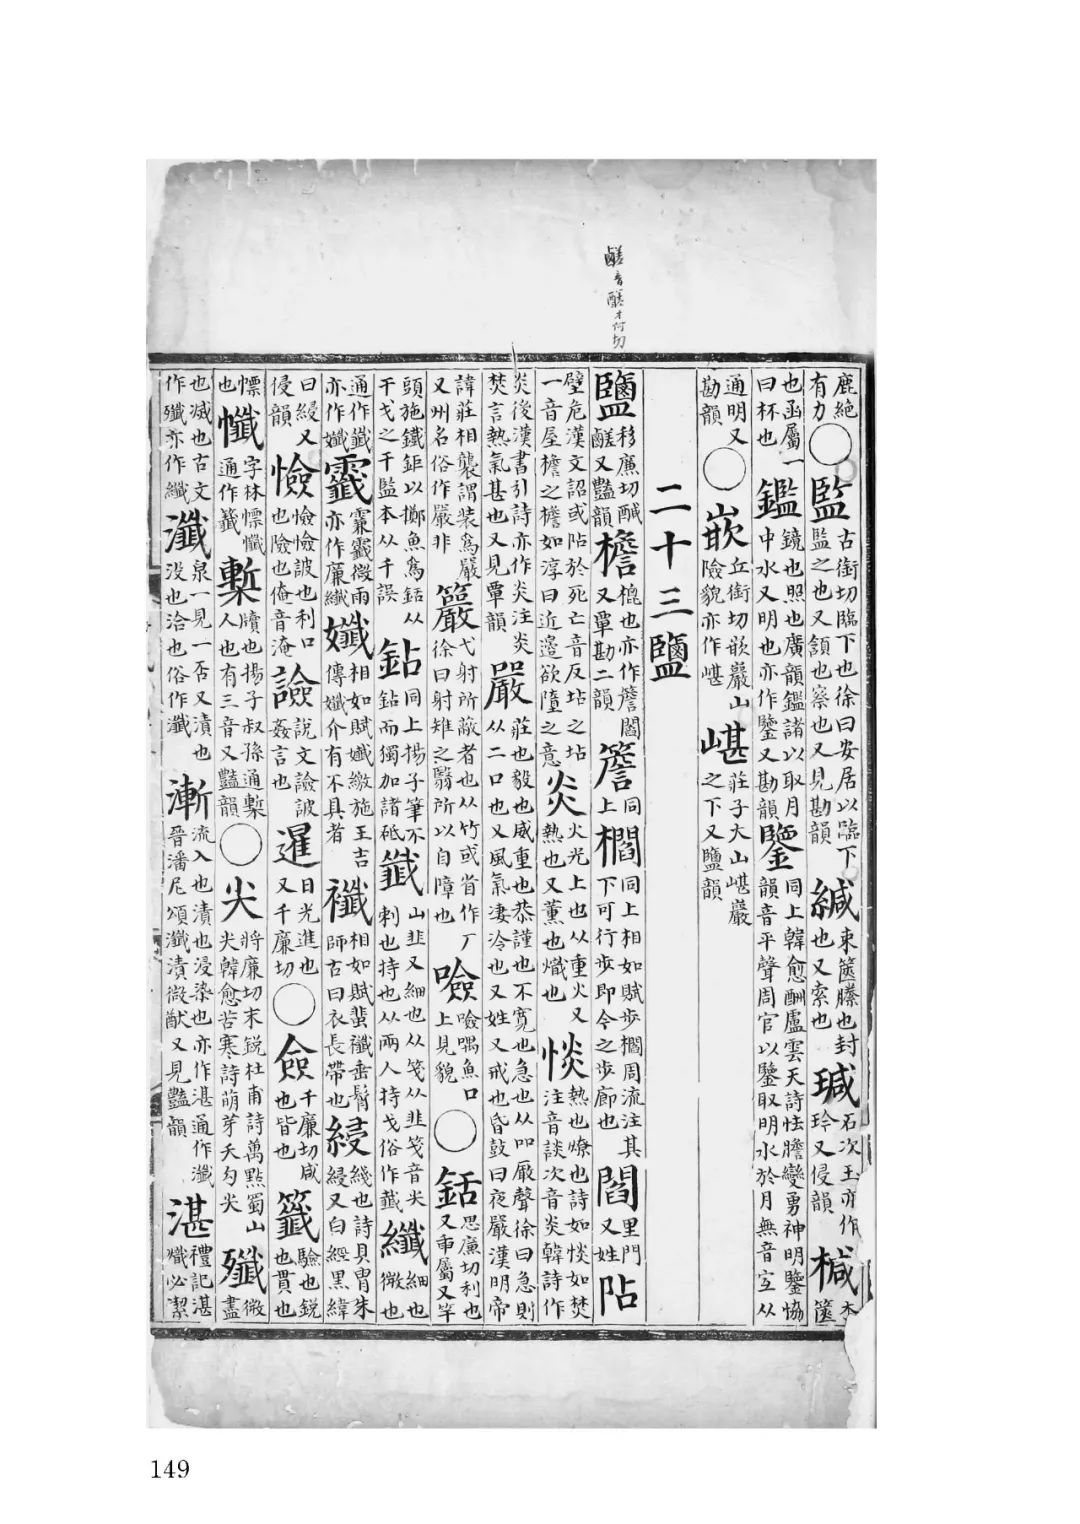 鹺音醝才何切
鹿絶有力〇監古銜切臨下也徐曰安居以臨下監之也又領也察也又見勘韻緘束篋縢也封也又索也瑊石次玉亦作玪又侵韻椷木篋
也函屬一曰杯也鑑鏡也照也廣韻鑑諸以取月中水又明也亦作鑒又勘韻鑒同上韓愈酬盧雲夫詩怯膽變勇神明鑒恊韻音平聲周官以鑒取明水於月無音宜从
通明又勘韻〇嵌丘銜切嵌巖山險貌亦作嵁嵁莊子大山嵁巖之下又鹽韻
二十三鹽
鹽移廉切鹹醝又豔韻檐㮰也亦作簷閻又覃勘二韻簷同上櫩同上相如賦步櫩周流注其下可行步即今之步廊也閻里門又姓阽
壁危漢文詔或阽於死亡音反坫之坫一音屋檐之檐如淳曰近邉欲墮之意炎火光上也从重火又熱也又薫也熾也惔熱也燎也詩如惔如焚注音談次音炎韓詩作
炎後漢書引詩亦作炎注炎焚言熱氣甚也又見覃韻嚴莊也毅也威重也恭謹也不寛也急也从吅厰聲徐曰急則从二口也又風氣凄冷也又姓又戒也昏鼓曰夜嚴漢明帝
諱莊相襲謂裝爲嚴又州名俗作嚴非𥷬弋射所蔽者也从竹或省作厂徐曰射雉之翳所以自障也噞噞喁魚口上見貌〇銛思廉切利也又臿屬又竿
頭施鐵鉅以擲魚爲銛从干戈之干監本从千誤銛同上揚子筆不銛而獨加諸砥韱山韭又細也从䇂从韭䇂音尖刺也持也从兩人持戈俗作韱纖細也微也
通作韱亦作孅霺霢霺微雨亦作廉纖孅相如賦孅繳施王吉傳孅介有不具者襳相如賦蜚襳垂髾師古曰衣長帶也綅綫也詩貝胄朱綅又白經黑緯
曰綅又侵韻憸憸憸詖也利口也險也俺音淹譣說文譣詖姦言也暹日光進也又千廉切〇僉千廉切咸也皆也籤驗也鋭也貫也
㦗也懺字林㦗懺通作籤槧牘也揚子叔孫通槧人也有三音又豔韻〇尖將廉切末鋭杜甫詩萬點蜀山尖韓愈苦寒詩萌芽夭勾尖殲微盡
也滅也古文作殱亦作纖瀸泉一見一否又漬也没也洽也俗作瀸漸流入也漬也浸染也亦作湛通作瀸晉潘尼頌瀸漬微猷又見豔韻湛禮記湛熾必潔
149